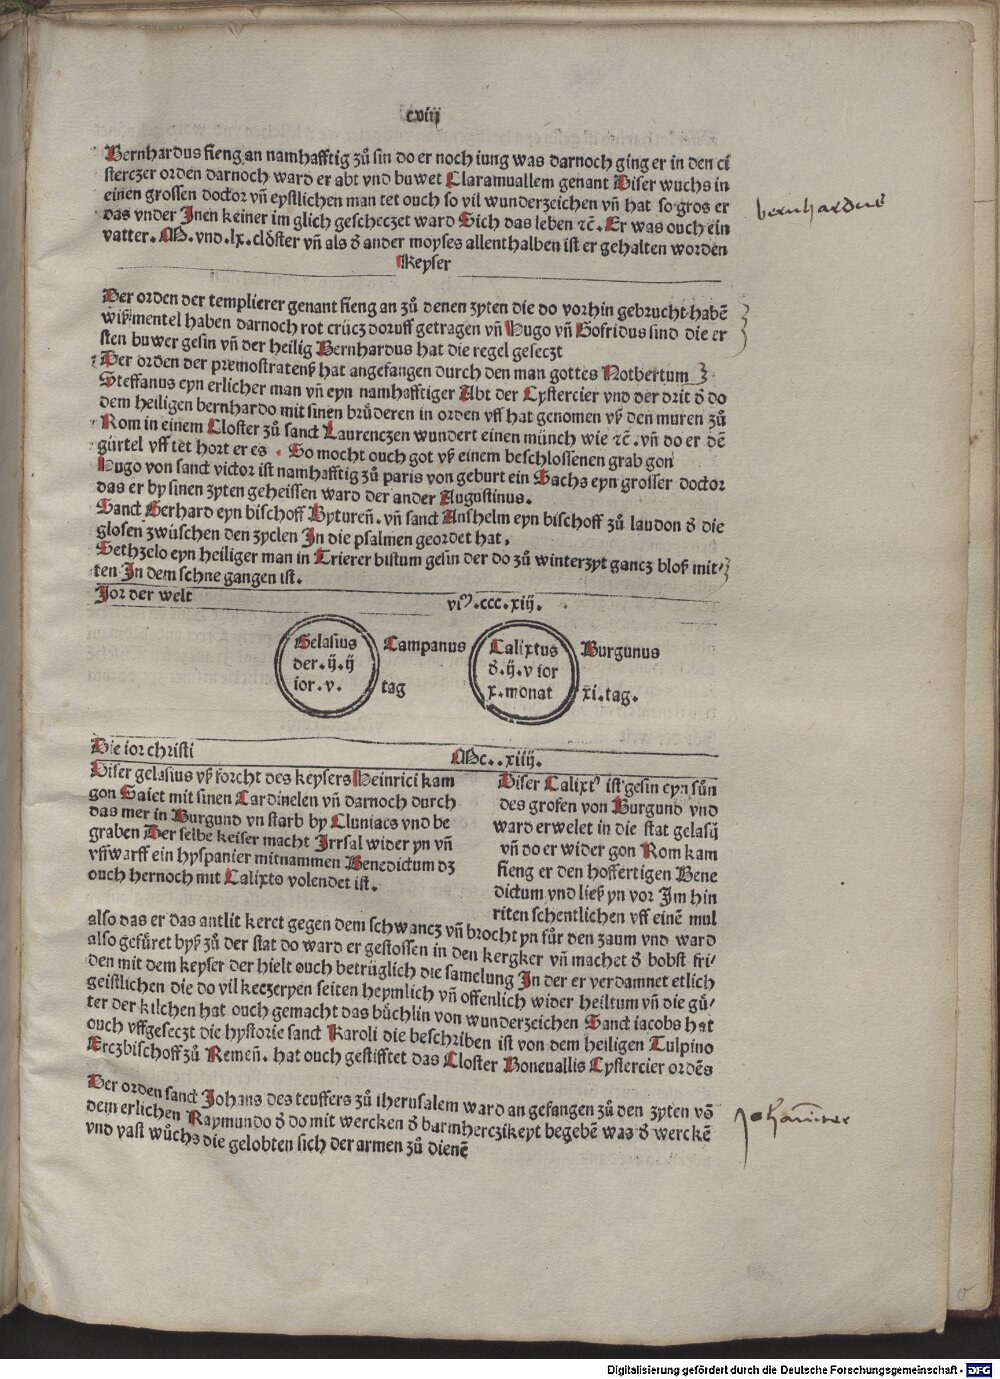 cxiij
Bernhardus fieng an namhafftig zů sin do er noch iung was darnoch ging er in den ci
sterczer orden darnoch ward er abt vnd buwet Claramuallem genant Diser wuchs in
einen grossen doctor vñ epstlichen man tet ouch so vil wunderzeichen vñ hat so gros er
das vnder Jnen keiner im glich gescheczet ward Sich das leben ⁊c̄. Er was ouch ein
vatter. M. vnd. lx. clo̊ster vñ als d̓ ander moyses allenthalben ist er gehalten worden
Keyser
bernhardus
Der orden der templierer genant fieng an zů denen zyten die do vorhin gebrucht habē
wiß mentel haben darnoch rot crücz doruff getragen vñ Hugo vñ Gofridus sind die er
sten buwer gesin vñ der heilig Bernhardus hat die regel geseczt
Der orden der premostratenß hat angefangen durch den man gottes Notbertum
Steffanus eyn erlicher man vñ eyn namhafftiger Abt der Cystercier vnd der drit d̓ do
dem heiligen bernhardo mit sinen brůderen in orden vff hat genomen vß den muren zů
Rom in einem Closter zů sanct Laurenczen wundert einen münch wie ⁊c̄. vñ do er dē
gürtel vff tet hort er es. So mocht ouch got vß einem beschlossenen grab gon
Hugo von sanct victor ist namhafftig zů paris von geburt ein Sachs eyn grosser doctor
das er by sinen zyten geheissen ward der ander Augustinus.
Sanct Gerhard eyn bischoff Bytureñ. vñ sanct Anshelm eyn bischoff zů laudon d̓ die
glosen zwüschen den zyclen Jn die psalmen geordet hat.
Gethzelo eyn heiliger man in Trierer bistum gesin der do zů winterzyt gancz bloß mit
ten Jn dem schne gangen ist.
Jor der welt vjᴹ.ccc.xiij.
Gelasius
der. ij. ij
ior. v.
Campanus
tag
Calixtus
d̓. ij. v ior
x. monat
Burgunus
xi. tag.
Die ior christi Mc..xiiij.
Diser gelasius vß forcht des keysers Heinrici kam
gon Gaiet mit sinen Cardinelen vñ darnoch durch
das mer in Burgund vn starb by Cluniacs vnd be
graben Der selbe keiser macht Jrrsal wider yn vñ
vffwarff ein hyspanier mitnammen Benedictum dz
ouch hernoch mit Calixto volendet ist.
Diser Calixt⁹ ist gesin eyn sůn
des grofen von Burgund vnd
ward erwelet in die stat gelasij
vñ do er wider gon Rom kam
fieng er den hoffertigen Bene
dictum vnd ließ yn vor Jm hin
riten schentlichen vff einē mul
also das er das antlit keret gegen dem schwancz vñ brocht yn für den zaum vnd ward
also gefüret byß zů der stat do ward er gestossen in den kergker vñ machet d̓ bobst fri
den mit dem keyser der hielt ouch betrüglich die samelung Jn der er verdamnet etlich
geistlichen die do vil keczeryen seiten heymlich vñ offenlich wider heiltum vñ die gü
ter der kilchen hat ouch gemacht das büchlin von wunderzeichen Sanct iacobs hat
ouch vffgeseczt die hystorie sanct Karoli die beschriben ist von dem heiligen Tulpino
Erczbischoff zů Remeñ. hat ouch gestifftet das Closter Boneuallis Cystercier ordēs
Der orden sanct Johans des teuffers zů iherusalem ward an gefangen zů den zyten vō
dem erlichen Raymundo d̓ do mit wercken d̓ barmherczikeyt begebē was d̓ werckē
vnd vast wůchs die gelobten sich der armen zů dienē
Digitalisierung gefördert durch die Deutsche Forschungsgemeinschaft - DFG